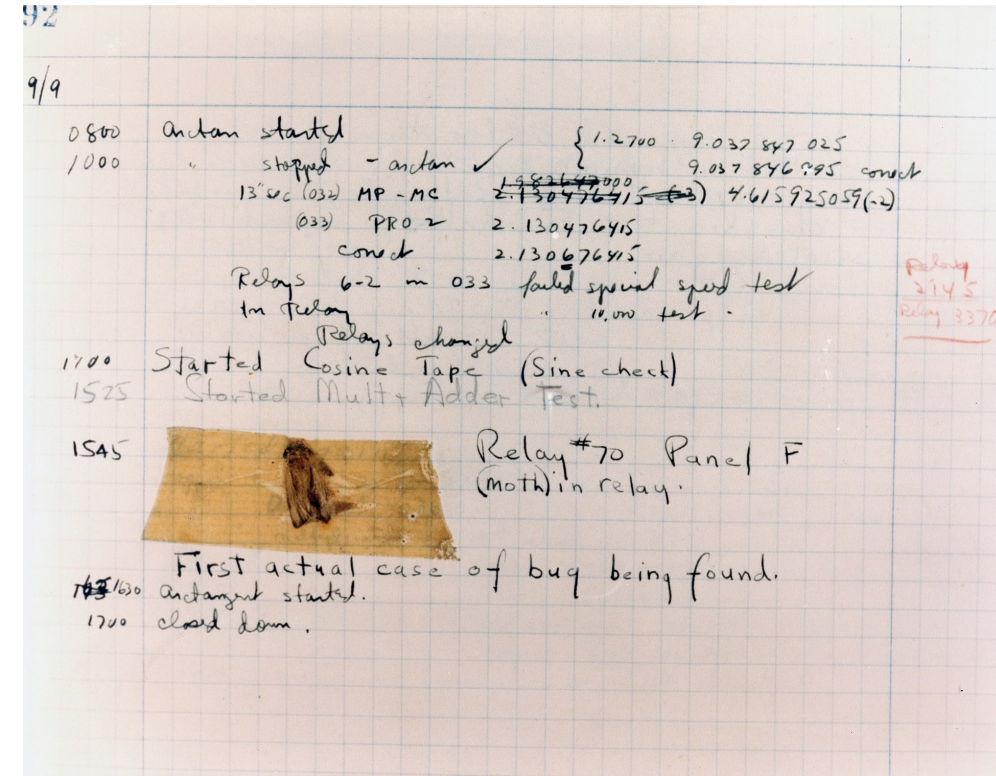 92
9/9
0800 Antan started
1000 " stopped - antan ✓ { 1.2700 9.037 847 025
9.037 846 995 conect
13" sec (032) MP - MC 1.982647000 2.130476415 (-3) 4.615925059(-2)
(033) PRO 2 2.130476415
conect 2.130676415
Relays 6-2 in 033 failed special speed test
In Relay " 10,000 test .
Relay
2145
Relay 3370
Relays changed
1700 Started Cosine Tape (Sine check)
1525 Started Mult + Adder Test.
1545 Relay #70 Panel F
(moth) in relay.
First actual case of bug being found.
1630 antangent started.
1700 closed down .